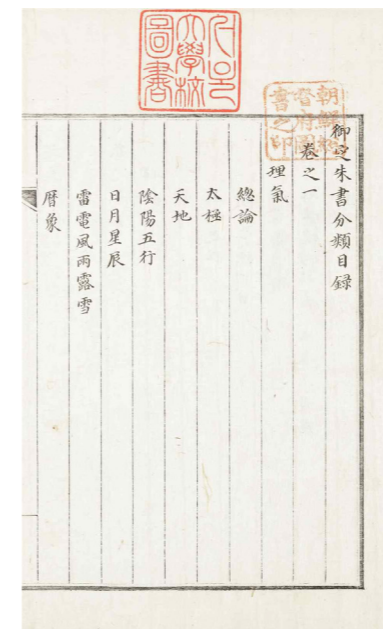 서울大學校圖書
朝鮮總督府圖書之印
御定朱書分類目錄
卷之一
理氣
總論
太極
天地
陰陽五行
日月星辰
雷電風雨露雪
曆象